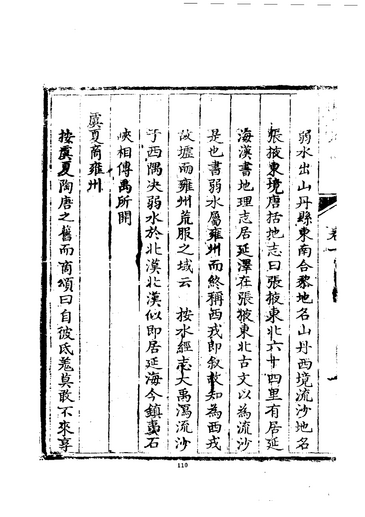 弱水出山丹縣東南合黎地名山丹西境流沙地名
張掖東境唐括地志曰張掖東北六十四里有居延
海漢書地理志居延澤在張掖東北古文以為流沙
是也書弱水屬雍州而終稱西戎即敘故知為西戎
故墟而雍州荒服之域云　按水經志大禹瀉流沙
于西隅决弱水於北漢北漢似即居延海今鎮夷石
峽相傳禹所開
虞夏商雍州
按虞夏陶唐之舊而商頌曰自彼氐羌莫敢不來享
卷一
110